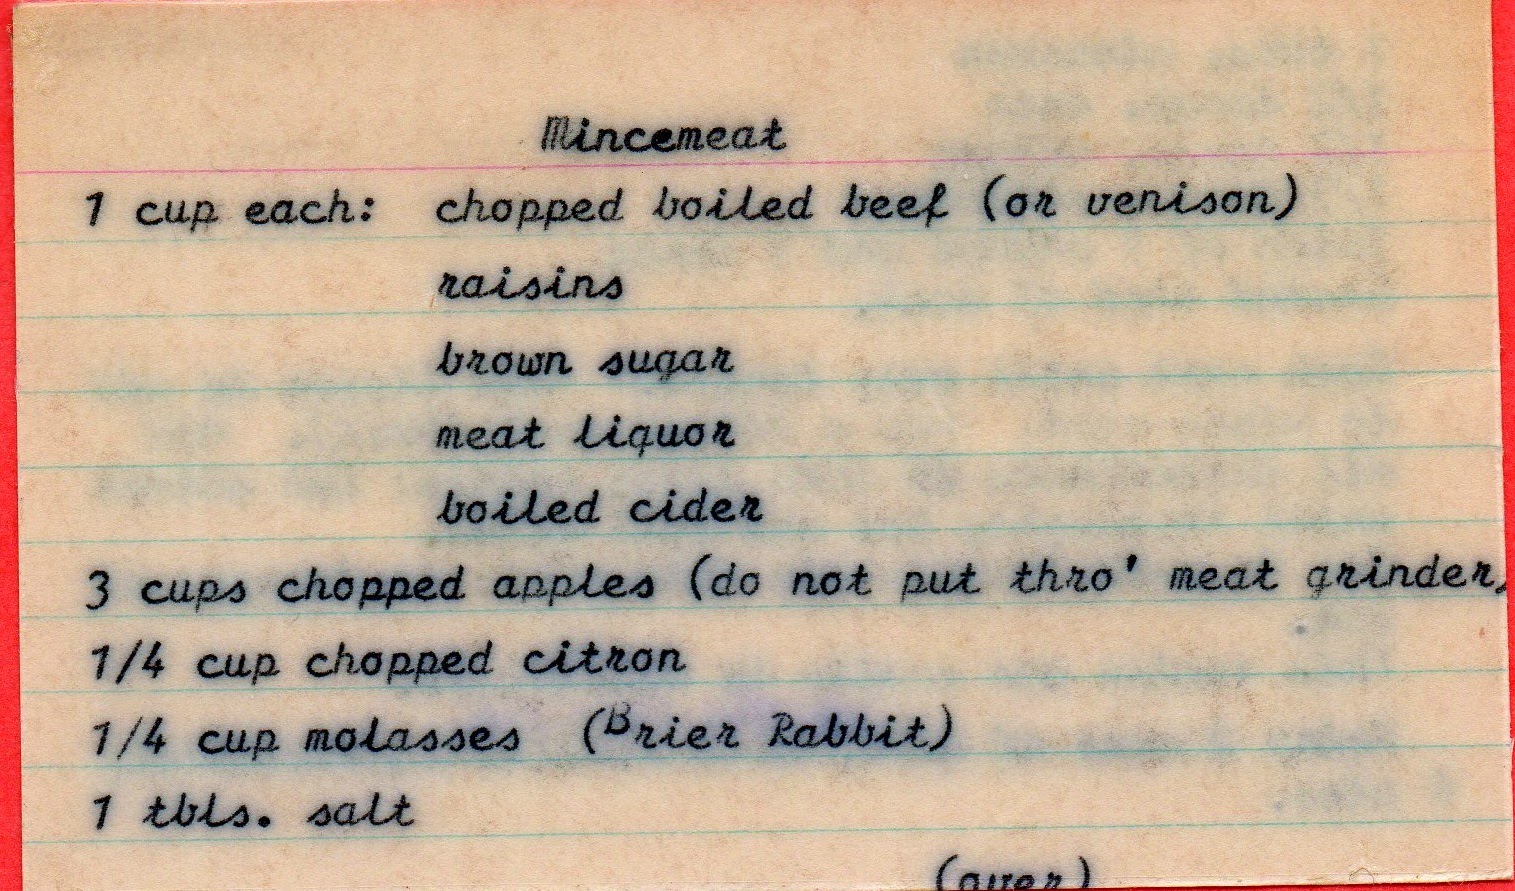 Mincemeat
1 cup each: chopped boiled beef (or venison)
raisins
brown sugar
meat liquor
boiled cider
3 cups chopped apples (do not put thro' meat grinder)
1/4 cup chopped citron
1/4 cup molasses (Brier Rabbit)
1 tbls. salt
(over)